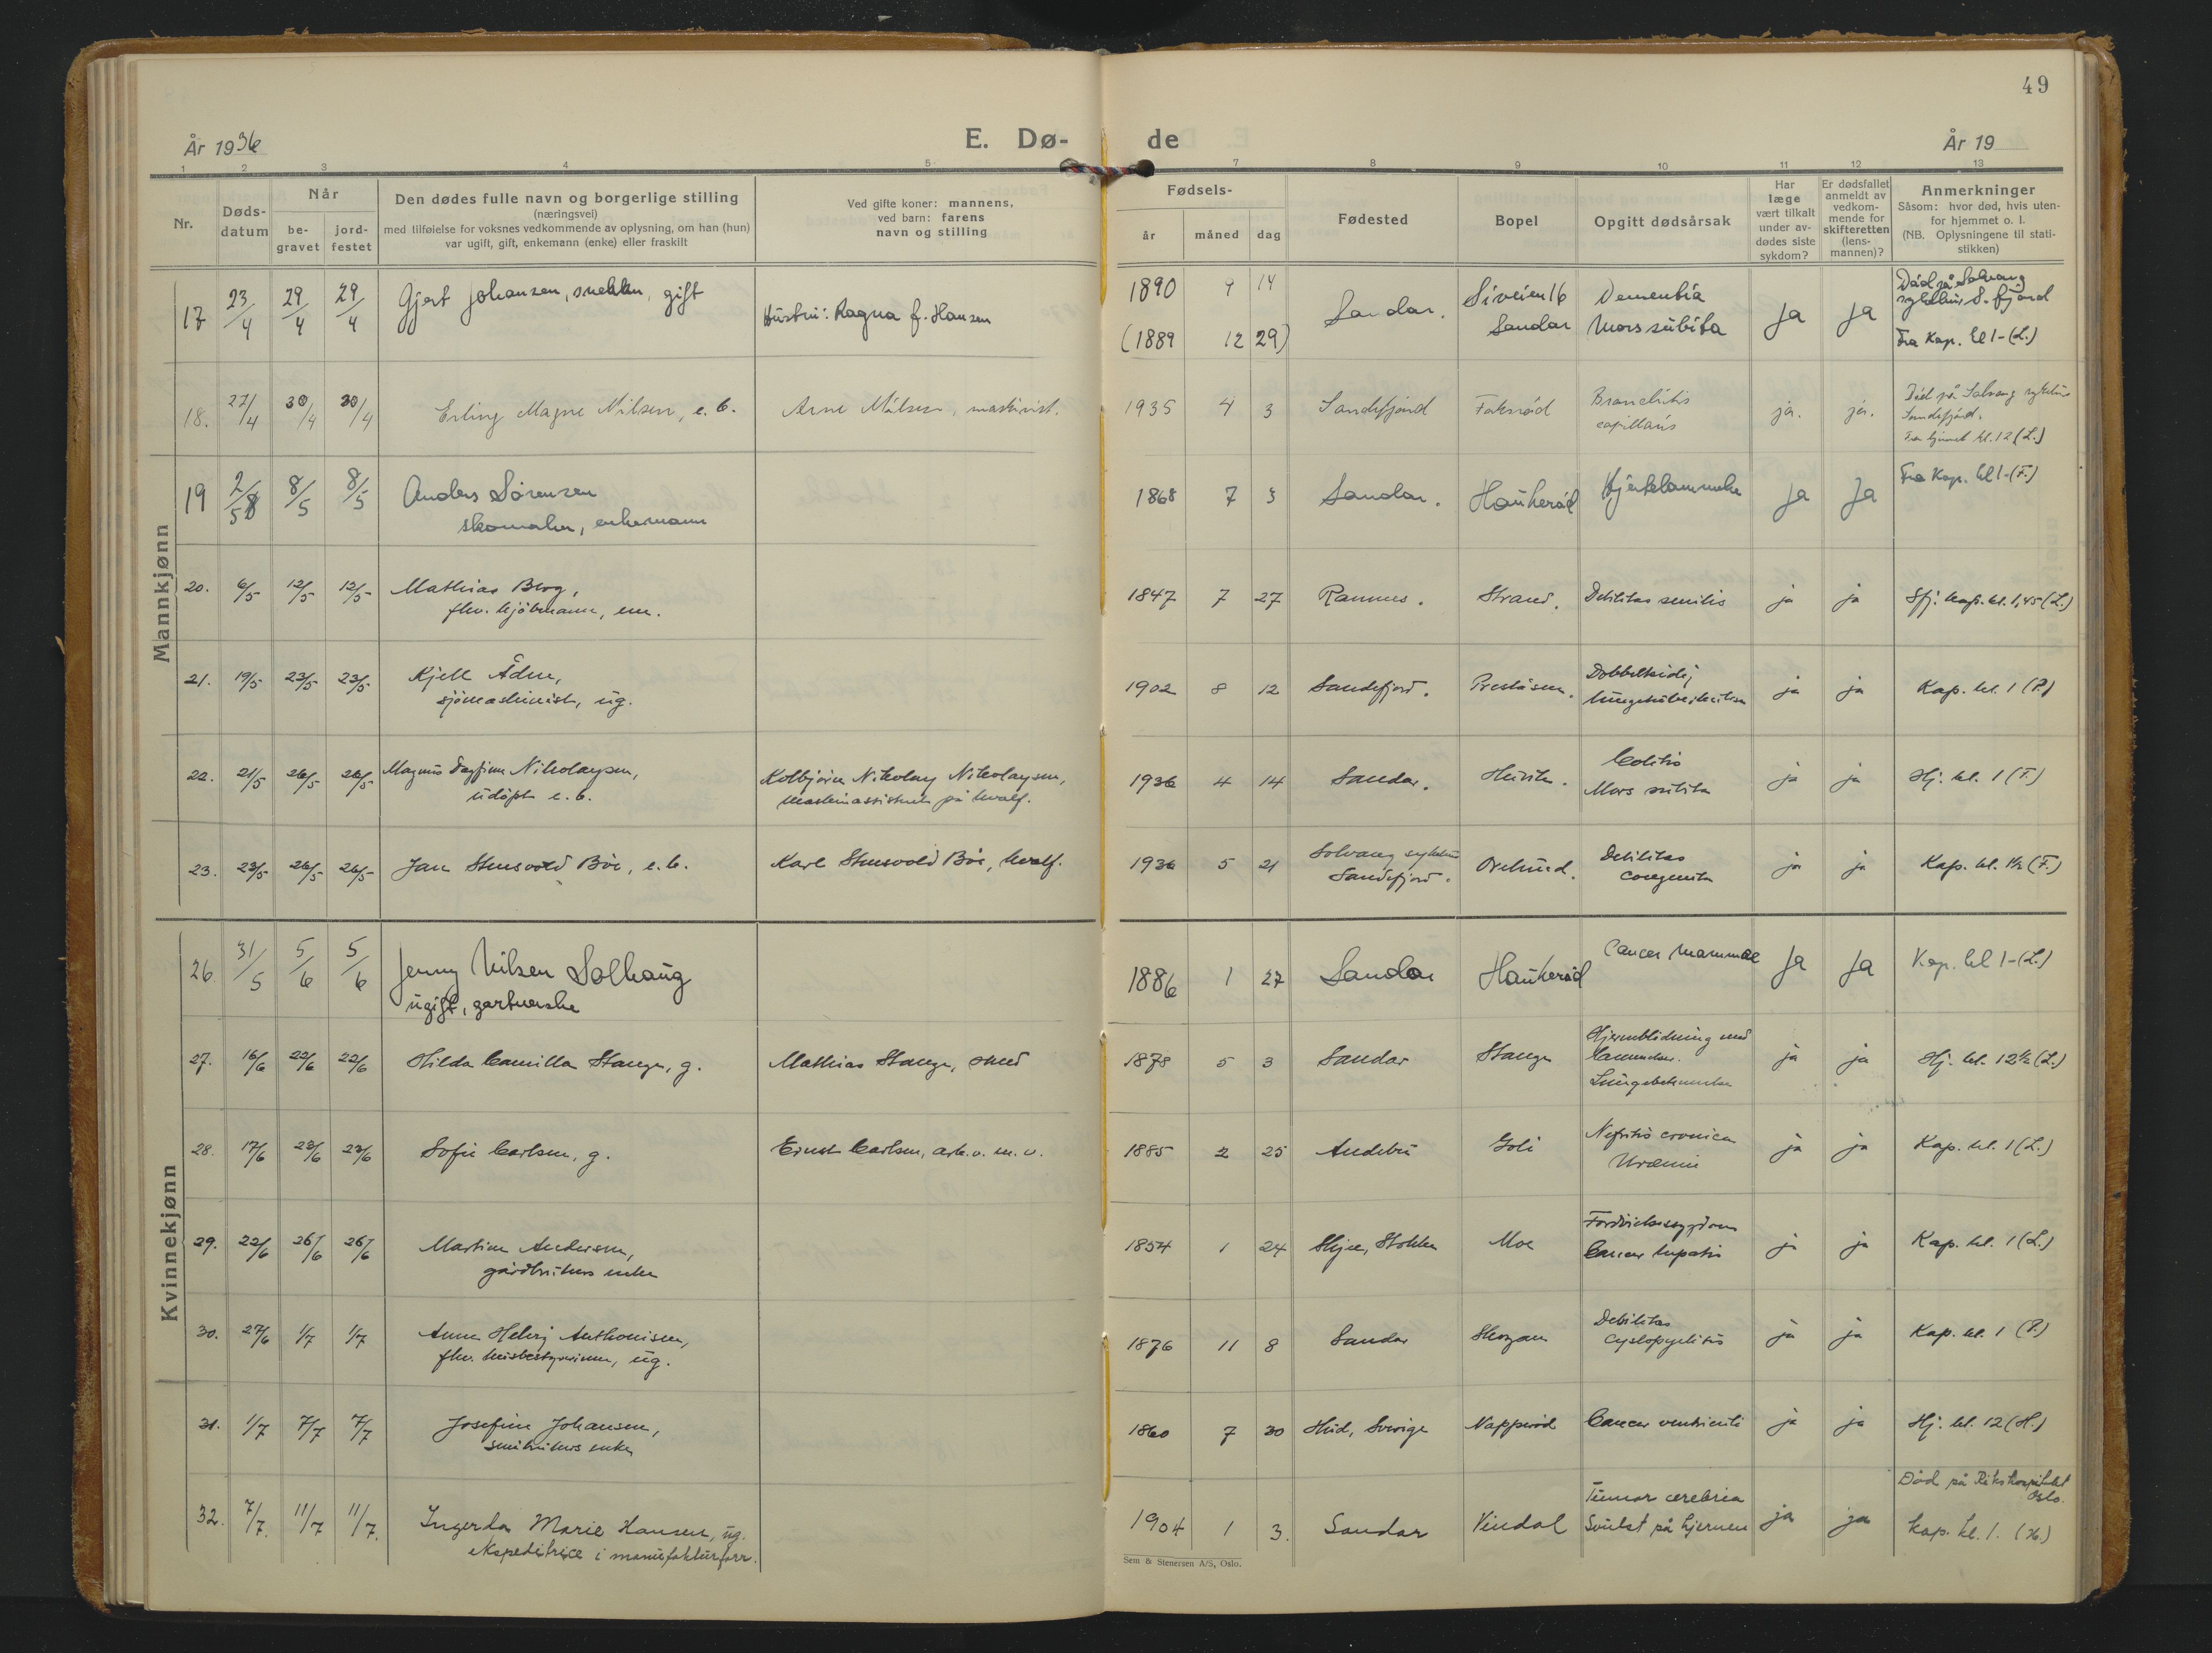 49
År 1936
E. Dø-
de
År 19
1 2 3 4 5 7 8 9 10 11 12 13
Nr.
Døds-
datum
Når
be-
gravet
jord-
festet
Den dødes fulle navn og borgerlige stilling
(næringsvei)
med tilføielse for voksnes vedkommende av oplysning, om han (hun)
var ugift, gift, enkemann (enke) eller fraskilt
Ved gifte koner: mannens,
ved barn: farens
navn og stilling
Fødsels-
år måned dag
Fødested
Bopel
Opgitt dødsårsak
Har
læge
vært tilkalt
under av-
dødes siste
sykdom?
Er dødsfallet
anmeldt av
vedkom-
mende for
skifteretten
(lens-
mannen)?
Anmerkninger
Såsom: hvor død, hvis uten-
for hjemmet o. l.
(NB. Oplysningene til stati-
stikken)
Mannkjønn
17 23/4 29/4 29/4 Gjert Johansen, snekker, gift
Hustru: Ragna f. Hansen
1890 9 14
(1889 12 29)
Sandar.
Siveien 16
Sandar
Dementia
Mors subita
Ja Ja
Død på Solvang
sykehus S.fjord
Fra Kap. kl 1-(L.)
18. 27/4 30/4 30/4 Erling Magne Nilsen, e. b.
Arne Nilsen, maskinist.
1935 4 3 Sandefjord Foksrød
Bronchitis
capillaris
ja. ja.
Død på Solvang sykehus
Sandefjord.
Fra hjemmet kl. 12 (L.)
19 2/5 8/5 8/5 Anders Sørensen
skomaker, enkemann
1868 7 3 Sandar. Haukerød Hjertelammelse Ja Ja
Fra Kap. kl 1-(F.)
20. 6/5 12/5 12/5 Mathias Berg,
fhv. kjøbmann, em.
1847 7 27 Ramnes. Strand. Debilitas senilis ja ja Sfj. kap. kl. 1,45 (L.)
21. 19/5 23/5 23/5 Kjell Ådne,
sjømaskinist, ug.
1902 8 12 Sandefjord. Preståsen.
Dobbeltsidig
lungetuberkulose
ja ja Kap. kl. 1 (P.)
22. 21/5 26/5 26/5 Magnus Dagfinn Nikolaysen,
udøpt e. b.
Kolbjørn Nikolay Nikolaysen,
maskinassistent på hvalf.
1936 4 14 Sandar.
Colitis
Mors subita
ja ja Hj. kl. 1 (F.)
23. 23/5 26/5 26/5 Jan Stensvold Bøe, e. b.
Karl Stensvold Bøe, hvalf.
1936 5 21
Solvang sykehus
Sandefjord.
Ørelund.
Debilitas
congenita
ja ja Kap. kl. 1½ (F.)
Kvinnekjønn
26 31/5 5/6 5/6 Jenny Nilsen Solhaug
ugift, gartnerske
1886 1 27 Sandar Haukerød Cancer mammae Ja Ja Kap. kl 1-(L.)
27. 16/6 22/6 22/6 Hilda Camilla Stange, g.
Mathias Stange, smed
1878 5 3 Sandar Stange
Hjerneblødning med
lammelser.
Lungebetennelse
ja ja Hj. kl. 12½ (L.)
28. 17/6 23/6 23/6 Sofie Carlsen, g.
Ernst Carlsen, arb. v. m. v.
1885 2 25 Andebu Goli
Nefritis cronica
Uræmie
ja ja Kap. kl. 1 (L.)
29. 22/6 26/6 26/6 Martine Andersen,
gårdbrukers enke
1854 1 24 Skjee, Stokke Moe
Fordøielsessygdom
Cancer hepatis
ja ja Kap. kl. 1 (L.)
30. 27/6 1/7 1/7 Anna Helvig Anthonisen,
fhv. husbestyrerinne, ug.
1876 11 8 Sandar Skogan
Debilitas
Cystopyelitis
ja ja Kap. kl. 1 (P.)
31. 1/7 7/7 7/7 Josefine Johansen,
småbrukers enke
1860 7 30 Hud, Sverige Napperød Cancer ventriculi ja ja Hj. kl. 12 (H.)
32. 7/7. 11/7 11/7. Ingerda Marie Hansen, ug.
ekspeditrice i manufakturforr.
1904 1 3. Sandar Vindal
Tumor cerebria
Svulst på hjernen
ja ja
Død på Rikshospitalet
Oslo.
kap. kl. 1. (H.)
Sem & Stenersen A/S, Oslo.